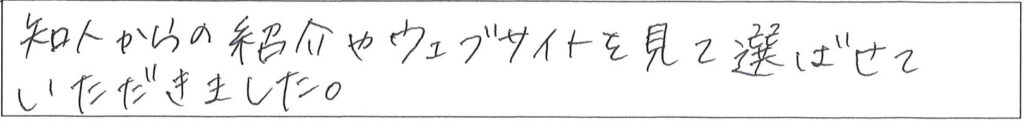 知人からの紹介やウェブサイトを見て選ばせて
いただきました。